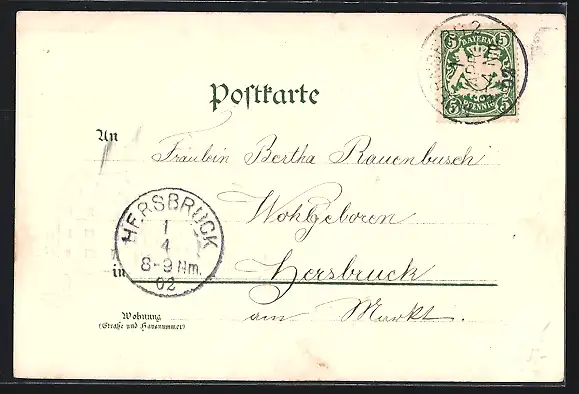 5 BAYERN 5
5 PFENNIG 5
02
Postkarte
An
Fräulein Bertha Rauenbusch
Wohlgeboren
HERSBRUCK
1
4
8-9 Nm.
02
in Hersbruck
am Markt.
Wohnung
(Straße und Hausnummer)